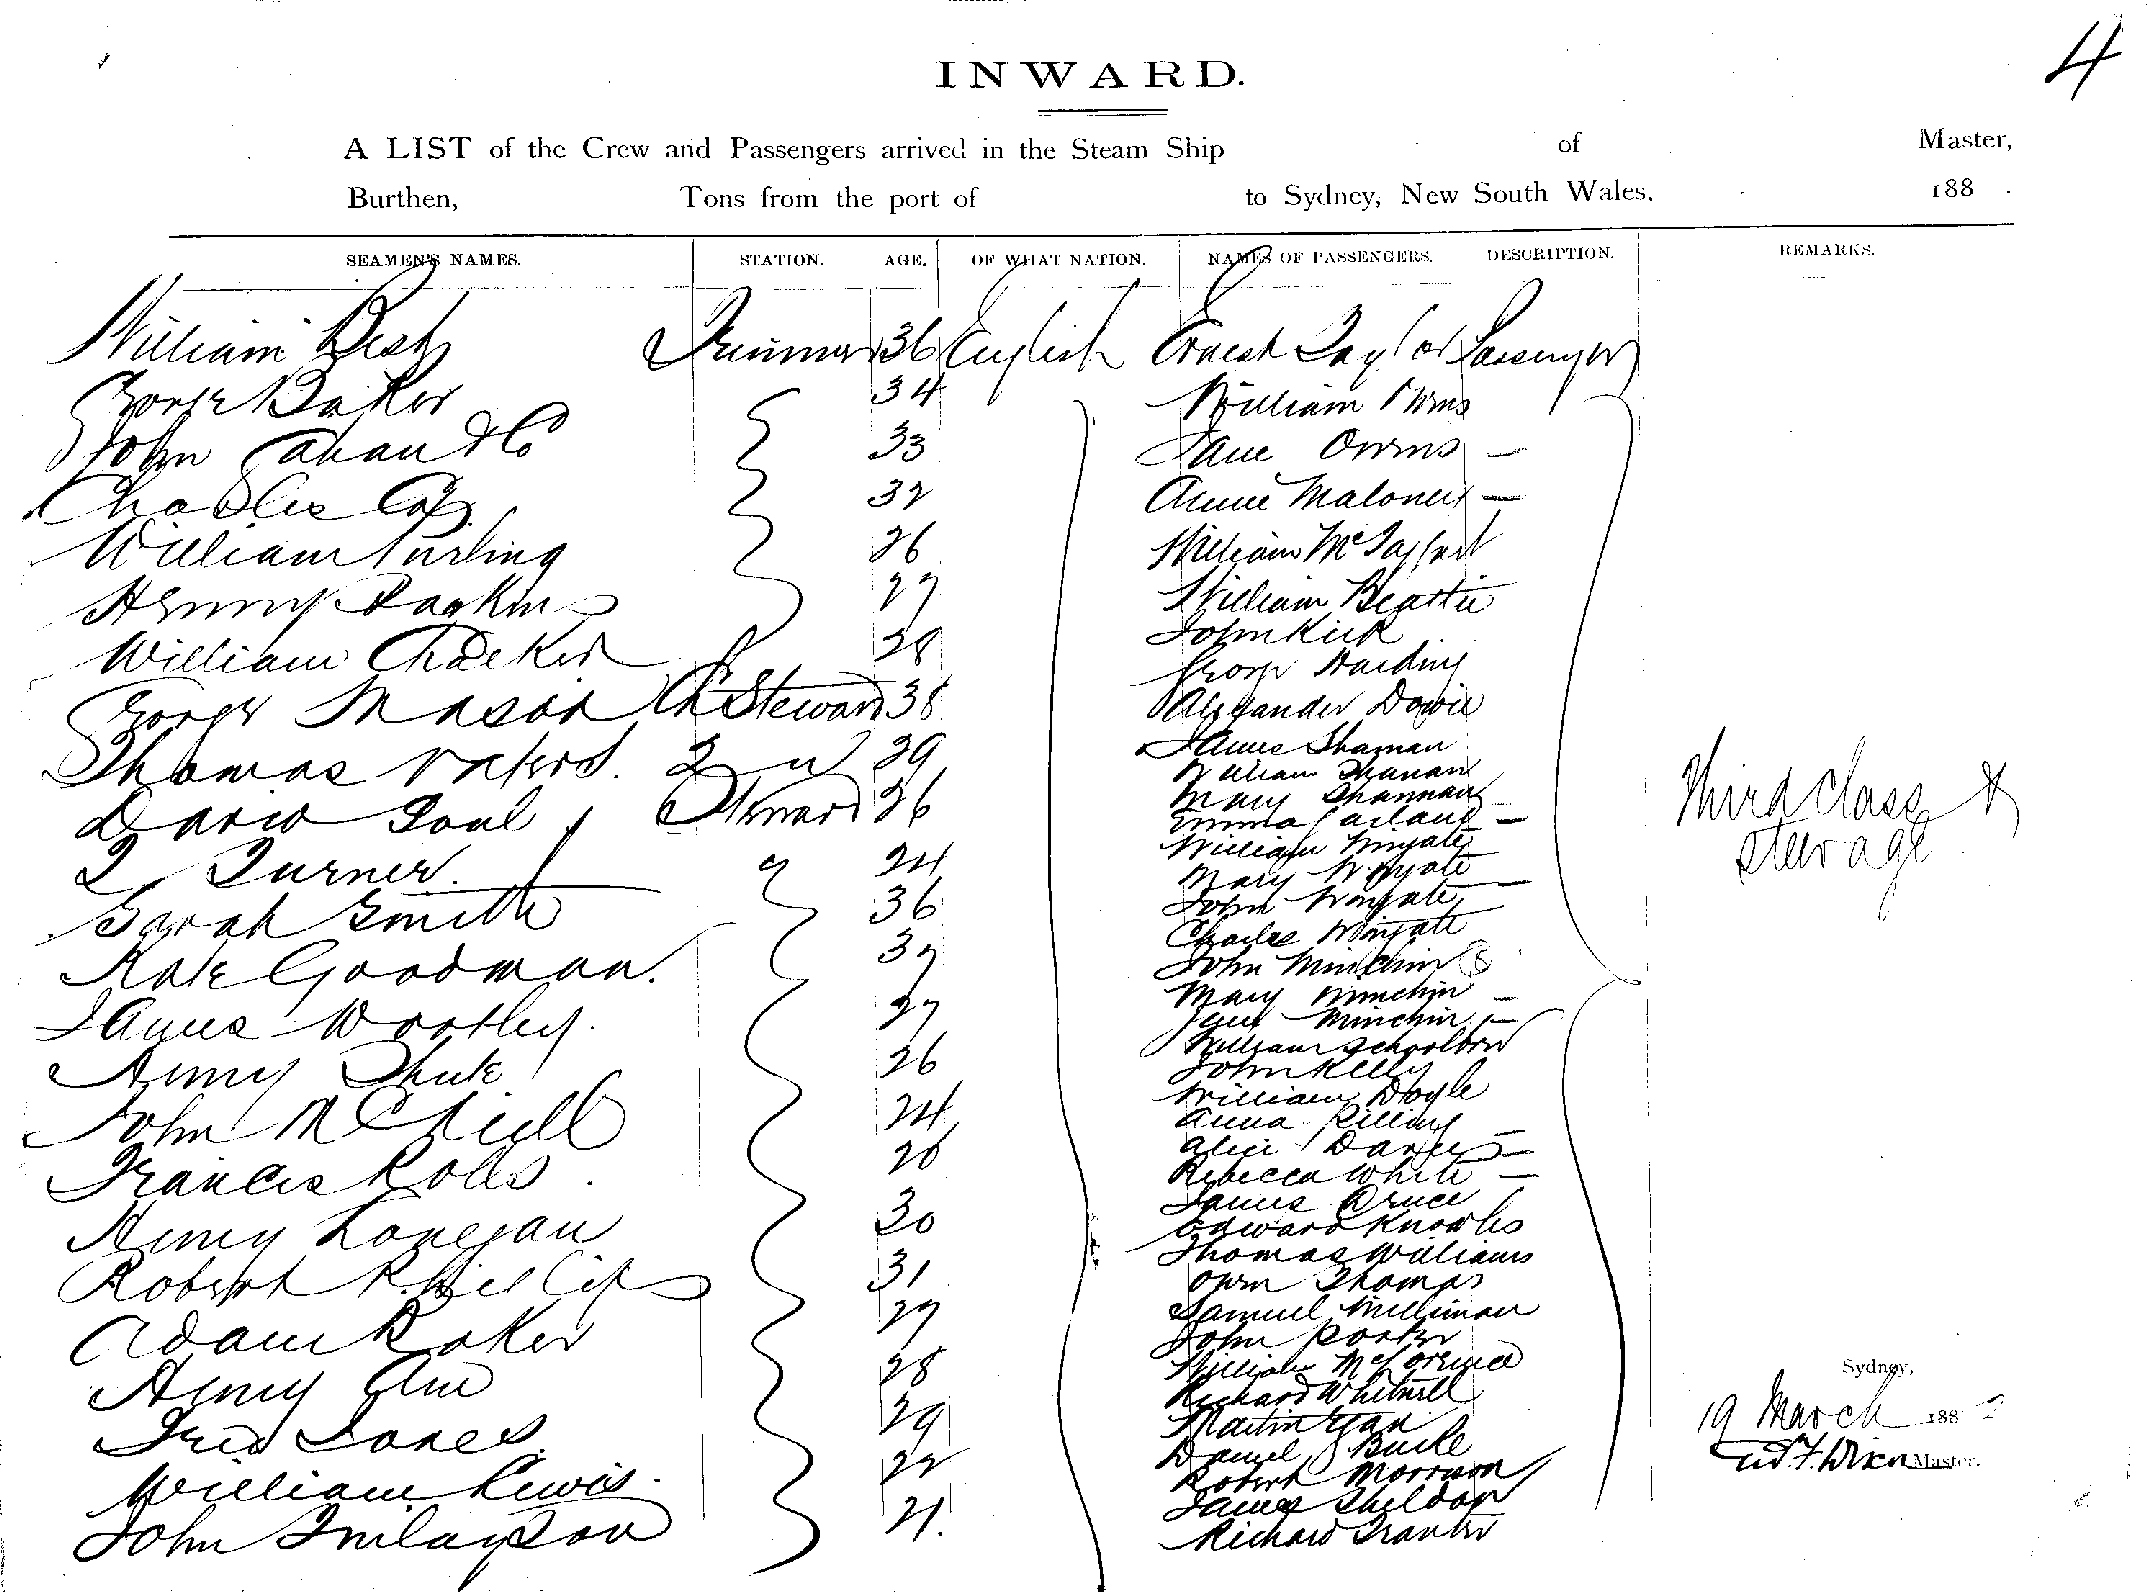 4
INWARD.
A LIST of the Crew and Passengers arrived in the Steam Ship of Master,
Burthen, Tons from the port of to Sydney, New South Wales, 188 .
SEAMEN'S NAMES. STATION. AGE. OF WHAT NATION. NAMES OF PASSENGERS. DESCRIPTION. REMARKS.
William Best Trimmer 36 English Ernest Taylor Passenger
George Baker 34 William
John 33 Jane Owens —
Charles Cox 32 Annie Maloney —
William Purling 26 William McTaggart
Henry 27 William Beattie
William Chacker 28 John Kirk
George Harding
George Mason Ch Steward 38 Alexander Dowie
James Shannan
Thomas 2 " 29 William Shannan
Mary Shannan —
David Soul Steward 26 Emma Garland —
William Wingate
T Turner 24 Mary Wingate —
Sarah Smith 36 John Wingate
Charles Wingate
Kate Goodman. 37 John Minchin
Mary Minchin —
James Wortley. 27 Jane Minchin —
William
Henry Shute 26 John Kelly
William Doyle
John McNeill 24 Anna Pilling —
Alice Davies —
Francis Rolls 28 Rebecca White —
James Bruce
Henry Lonegan 30 Edward Knowles
Thomas Williams
Robert Phillips 31 Owen Thomas
Samuel Milliman
Adam Baker 29 John Porter
William
Henry Elm 28 Richard Whitnell
Fred Jones 29 Martin Egan
Daniel Burke
William Lewis. 22 Robert Morrison
James Sheldon
John Finlayson 21. Richard Tranter
Third Class &
steerage
Sydney,
19 March 188 2
Master.